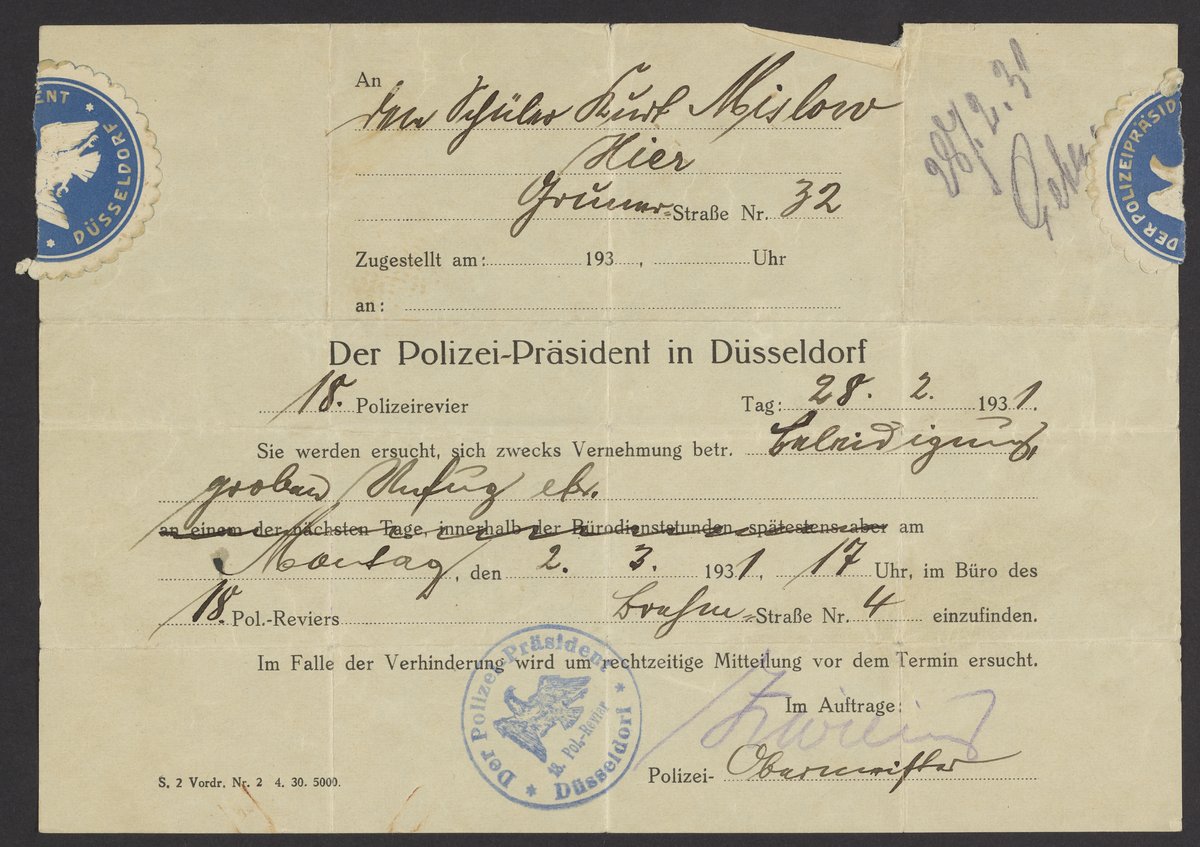 ENT * DÜSSELDORF *
An
den Schüler Kurt Mislow
Hier
Gruner-Straße Nr. 32
Zugestellt am: 193 , Uhr
an:
28/2.31
DER POLIZEIPRÄSID
Der Polizei-Präsident in Düsseldorf
18. Polizeirevier Tag: 28. 2. 1931.
Sie werden ersucht, sich zwecks Vernehmung betr. Beleidigung,
groben Unfug etc.
an einem der nächsten Tage, innerhalb der Bürodienststunden spätestens aber am
Montag, den 2. 3. 1931, 17 Uhr, im Büro des
18. Pol.-Reviers Brehm-Straße Nr. 4 einzufinden.
Im Falle der Verhinderung wird um rechtzeitige Mitteilung vor dem Termin ersucht.
Im Auftrage:
Polizei- Obermeister
Der Polizei-Präsident * Düsseldorf *
18. Pol.-Revier
S. 2 Vordr. Nr. 2 4. 30. 5000.